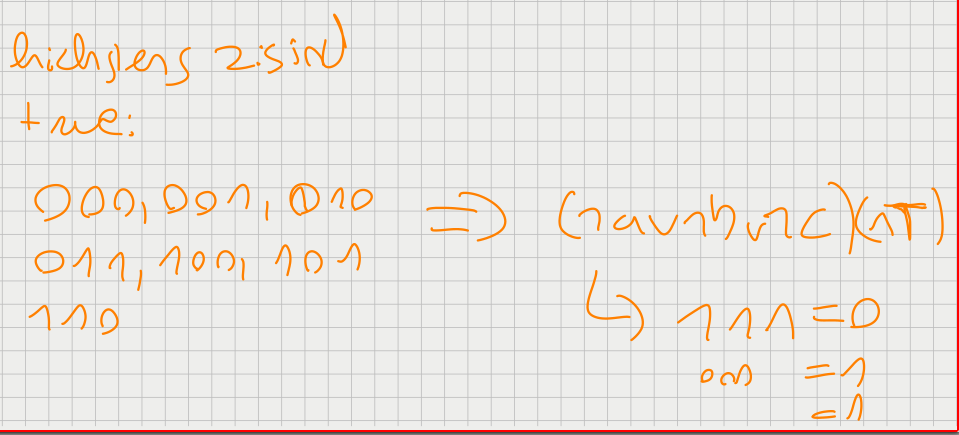 höchstens 2 sind
true:
000, 001, 010 => (¬a∨¬b∨¬c)
011, 100, 101
110
↳ 111 = 0
= 1
= 1